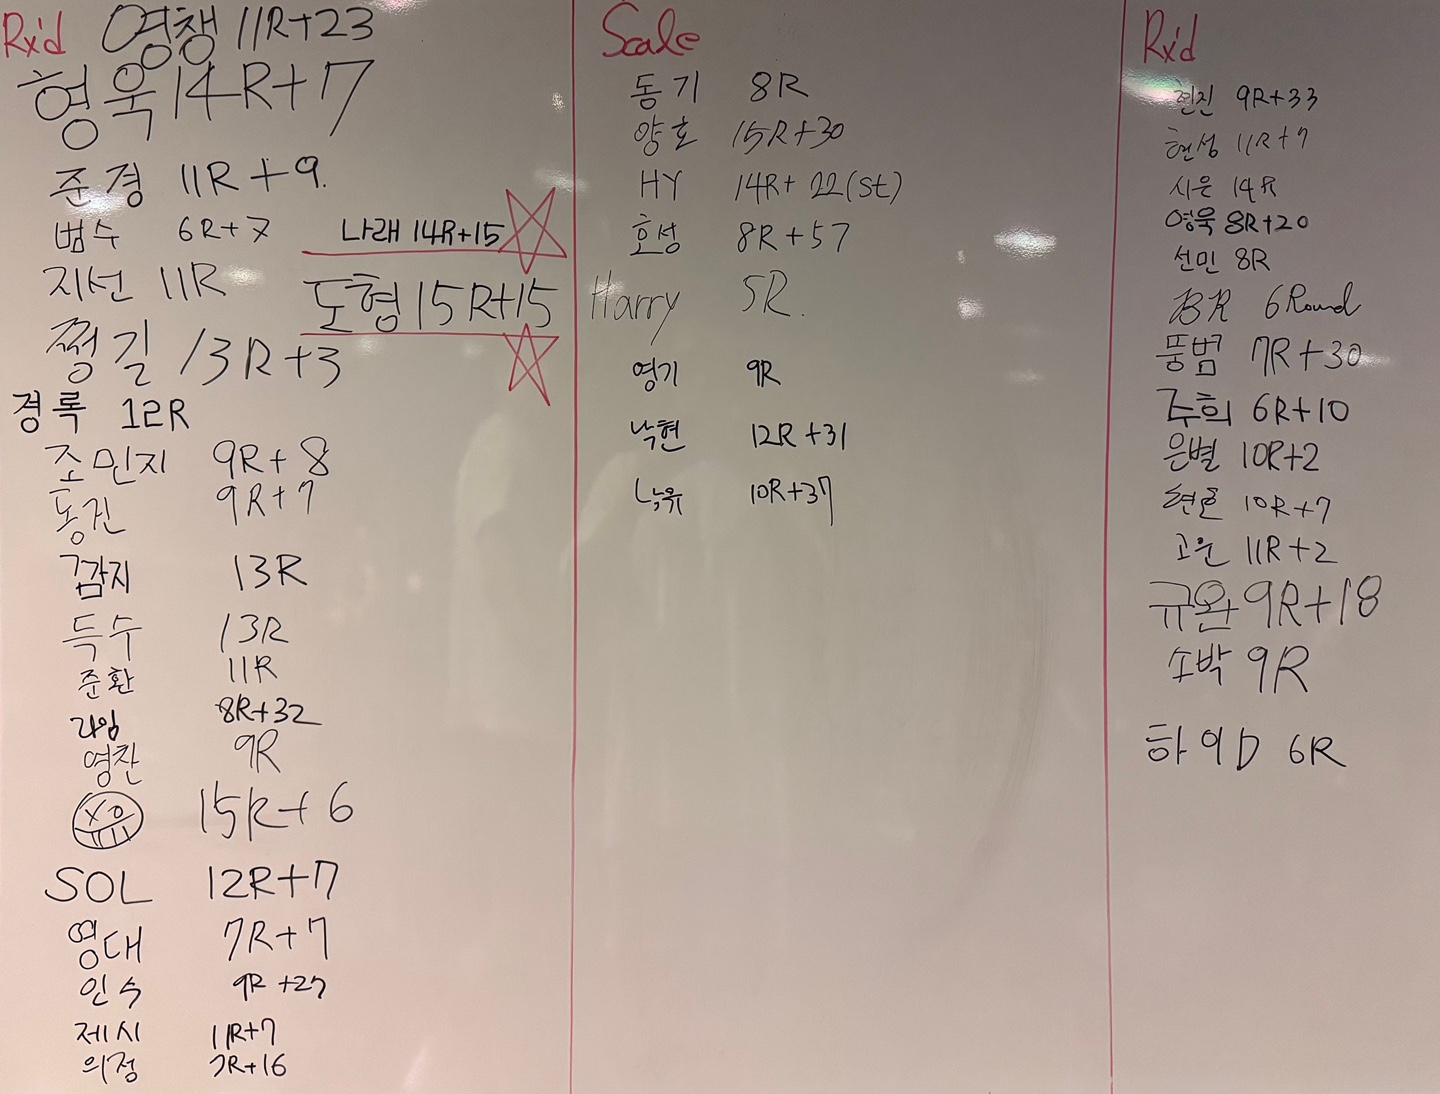 Rx'd 영챙 11R+23
형욱 14R+7
준경 11R+9.
범수 6R+7
나래 14R+15
지선 11R
도형 15R+15
쩡길 13R+3
경록 12R
조민지 9R+8
동진 9R+7
감지 13R
득수 13R
준환 11R
라임 8R+32
영찬 9R
15R+6
SOL 12R+7
영대 7R+7
인수 9R+27
제시 11R+7
의정 7R+16
Scale
동기 8R
양호 15R+30
HY 14R+22(St)
호성 8R+57
Harry 5R.
영기 9R
낙현 12R+31
10R+37
Rx'd
현진 9R+33
현성 11R+7
시은 14R
영욱 8R+20
선민 8R
BR 6Round
뚱범 7R+30
주희 6R+10
은별 10R+2
현호 10R+7
고운 11R+2
규완 9R+18
소박 9R
6R